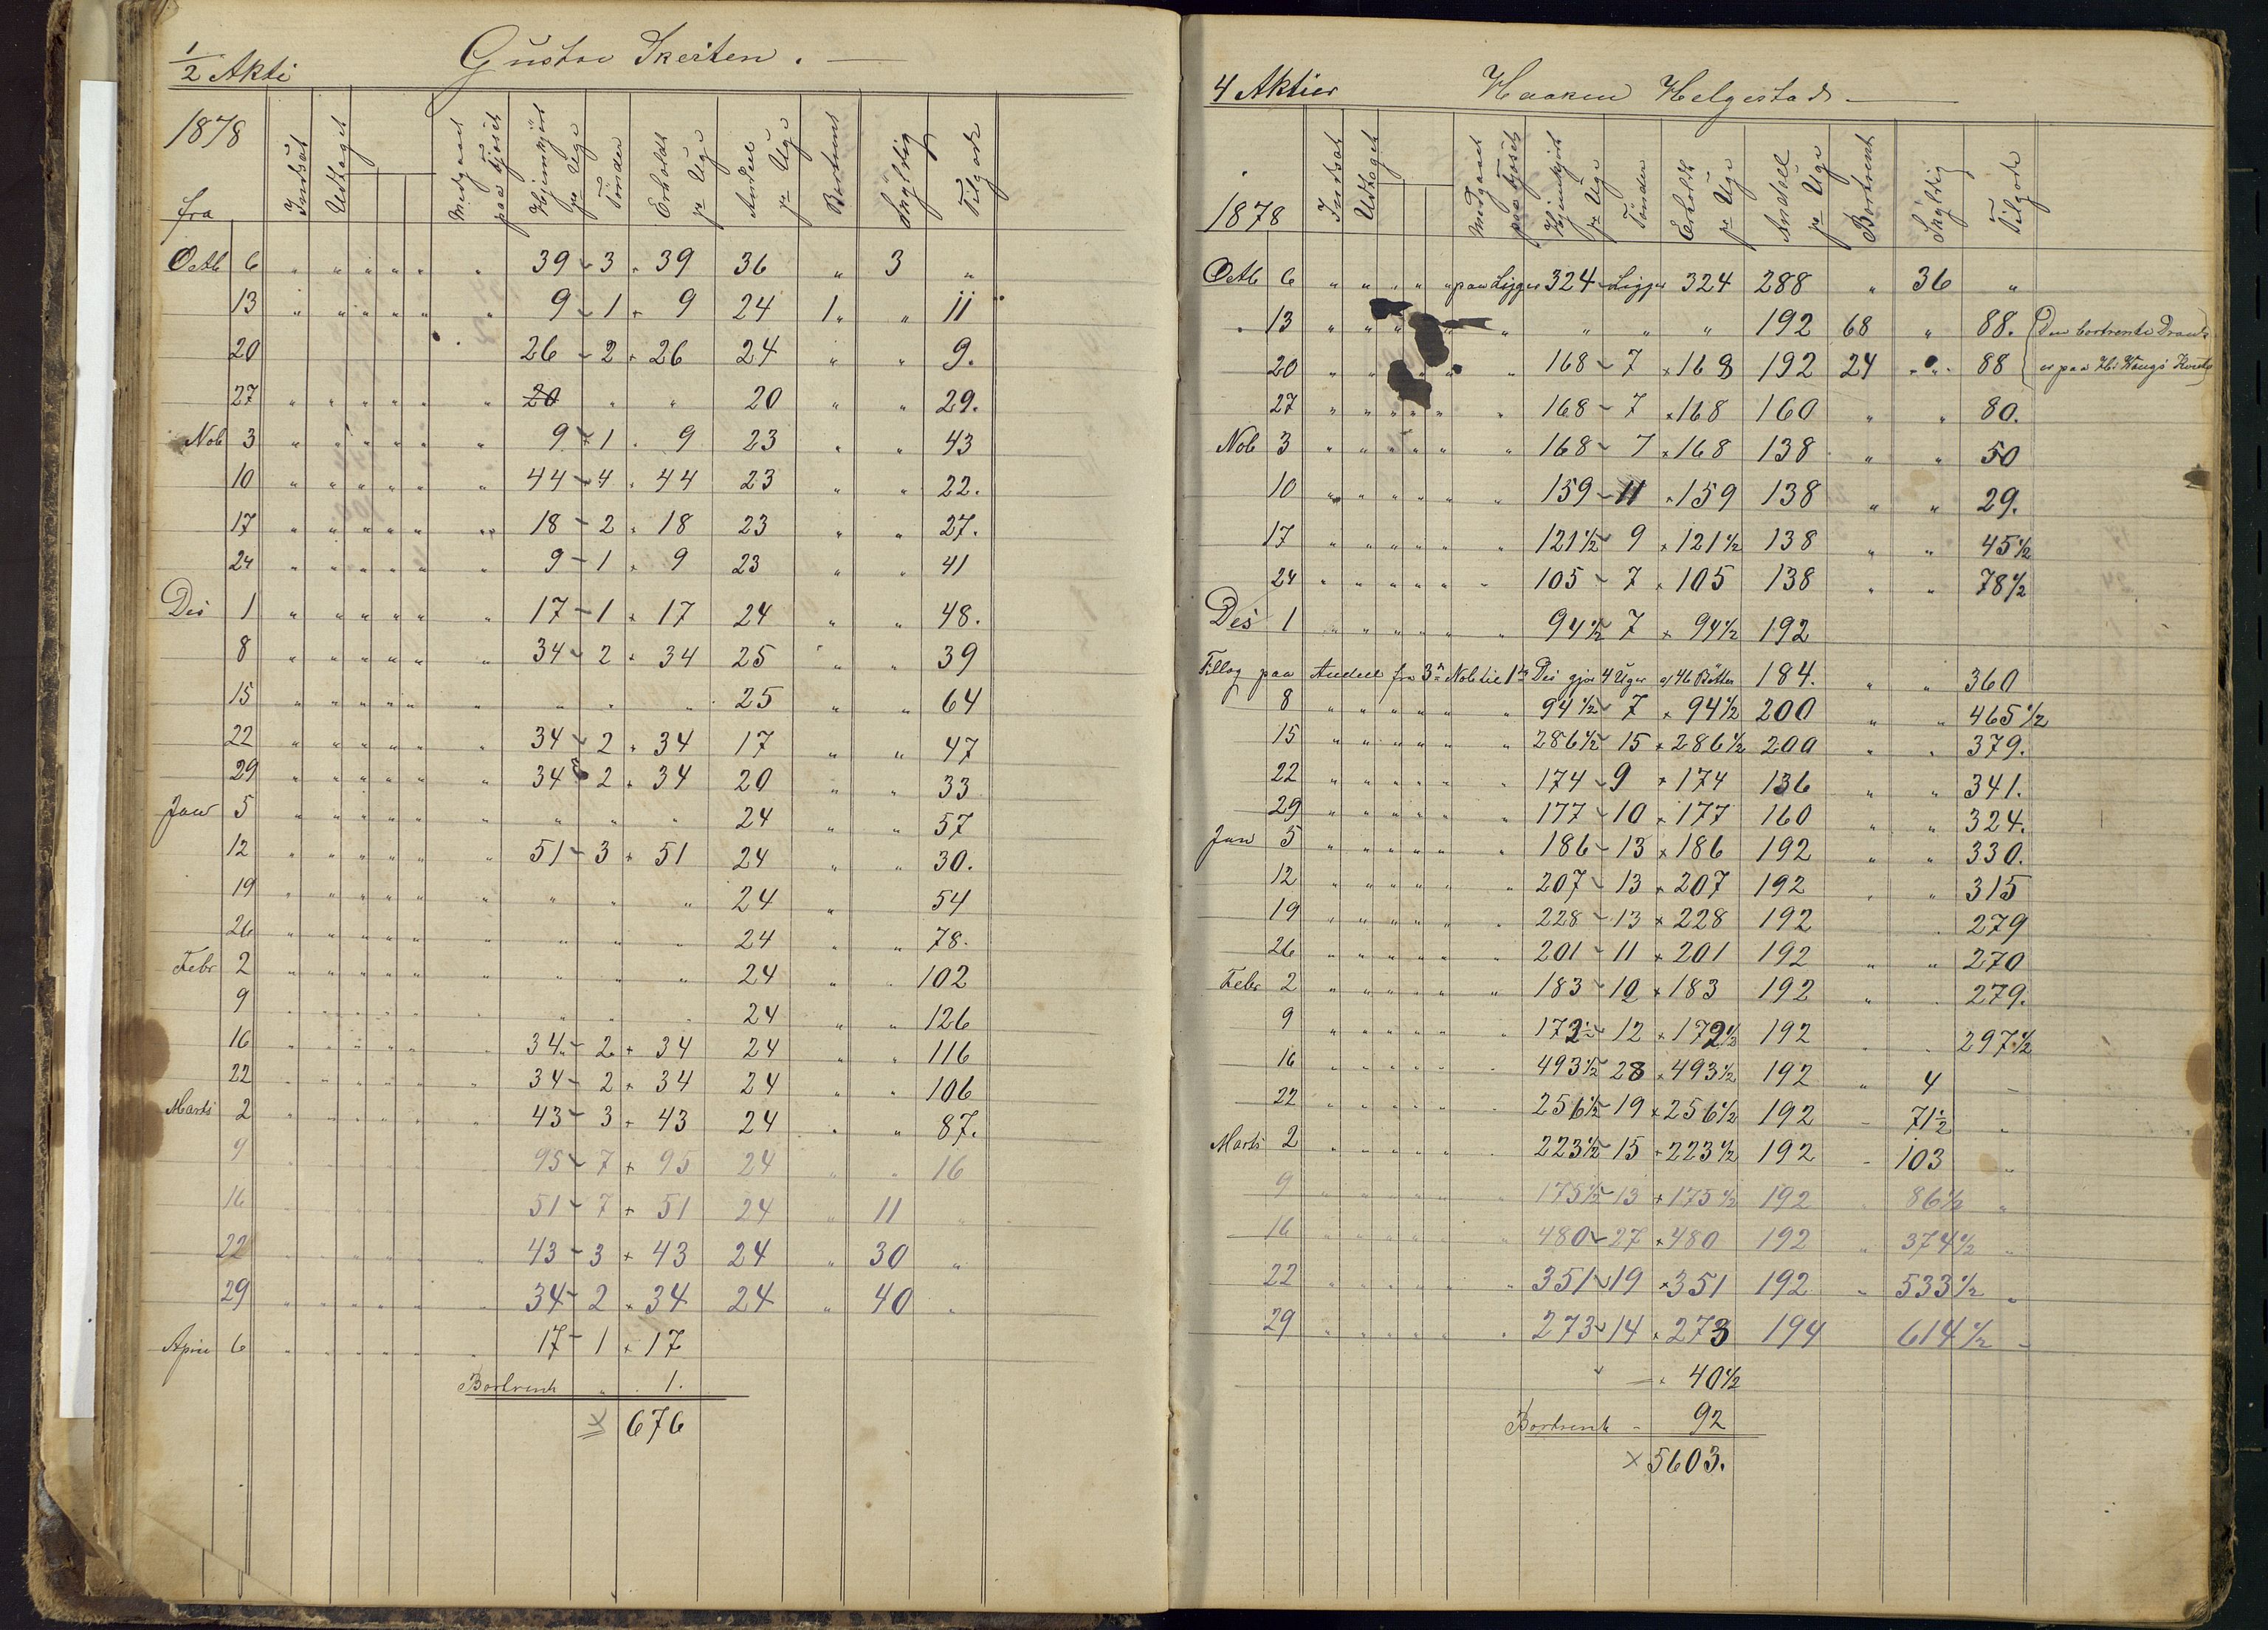 1/2 Akti
Gustav Skeiten. —
1878
fra
Indsat
Udtaget
Medgaaet paa Kjøset
Hjemkjørt pr Uge
Tønder
Erholdt pr Uge
Andeel pr Uge
Bortrent
Skyldig
Tilgode
Octb 6 " " " " " " 39 - 3 × 39 36 " 3 "
13 " " " " " 9 - 1 × 9 24 1 " " 11
20 26 - 2 × 26 24 " " 9.
27 " " " " " " 20 " " 20 " " 29.
Nob 3 " " " " " " 9 - 1 × 9 23 " " 43
10 " " " " " " 44 - 4 × 44 23 " " 22.
17 " " " " " " 18 - 2 × 18 23 " " 27.
24 " " " " " " 9 - 1 × 9 23 " " 41
Des 1 " " " " " " 17 - 1 × 17 24 " " 48.
8 " " " " " " 34 - 2 × 34 25 " " 39
15 " " " " " " " " " 25 " " 64
22 " " " " " " 34 - 2 × 34 17 " " 47
29 " " " " " " 34 2 × 34 20 " " 33
Jan 5 " " " " " " " " " 24 " " 57
12 " " " " " " 51 - 3 × 51 24 " " 30.
19 " " " " " " " " " 24 " 54
26 " " " " " " " " " 24 " " 78.
Febr 2 " " " " " " " " " 24 " " 102
9 " " " " " " " " " 24 " " 126
16 " " " " " " 34 - 2 × 34 24 " " 116
22 " " " " " " 34 - 2 × 34 24 " " 106
Marts 2 " " " " " " 43 - 3 × 43 24 " " 87.
9 " " " " " " 95 - 7 × 95 24 " " 16
16 " " " " " " 51 - 7 × 51 24 " 11 "
22 " " " " " " 43 - 3 × 43 24 " 30 "
29 " " " " " " 34 - 2 × 34 24 " 40 "
April 6 " " " " " " 17 - 1 × 17
Bortrent " 1.
× 676
4 Aktier
Haaken Helgestad —
1878
Indsat
Udtaget
Medgaaet paa Kjøset
Hjemkjørt pr Uge
Tønder
Erholdt pr Uge
Andeel pr Uge
Bortrent
Skyldig
Tilgode
Octb 6 " " " " " paa Ligger 324 - Ligger 324 288 " 36 "
13 " " " " " " " " 192 68 " 88. (Den bortrente Drank
20 " " " " " " 168 - 7 × 168 192 24 " 88 er paa Konto)
27 " " " " " " 168 - 7 × 168 160 " " 80.
Nob 3 " " " " " " 168 - 7 × 168 138 " " 50
10 " " " " " " 159 - 11 × 159 138 " " 29.
17 " " " " " " 121 1/2 - 9 × 121 1/2 138 " " 45 1/2
24 " " " " " " 105 - 7 × 105 138 " " 78 1/2
Des 1 " " " " " " 94 1/2 7 × 94 1/2 192
Tillæg paa Andeel fra 3de Nob til 1ste Des gjør 4 Uger a/ 46 Bøtter 184. " " 360
8 " " " " " " 94 1/2 - 7 × 94 1/2 200 " " 465 1/2
15 " " " " " " 286 1/2 - 15 × 286 1/2 200 " " 379.
22 " " " " " " 174 - 9 × 174 136 " " 341.
29 " " " " " " 177 - 10 × 177 160 " " 324.
Jan 5 " " " " " " 186 - 13 × 186 192 " " 330.
12 " " " " " " 207 - 13 × 207 192 " " 315
19 " " " " " " 228 - 13 × 228 192 " 279
26 " " " " " " 201 - 11 × 201 192 " " 270
Febr 2 " " " " " " 183 - 10 × 183 192 " " 279.
9 " " " " " " 172 1/2 - 12 × 172 1/2 192 " " 297 1/2
16 " " " " " " 493 1/2 28 × 493 1/2 192 " 4 -
22 " " " " " " 256 1/2 - 19 × 256 1/2 192 " 71 1/2 "
Marts 2 " " " " " " 223 1/2 - 15 × 223 1/2 192 " 103 "
9 " " " " " " 175 1/2 - 13 × 175 1/2 192 " 86 1/2 "
16 " " " " " " 480 - 27 × 480 192 " 374 1/2 "
22 " " " " " " 351 - 19 × 351 192 " 533 1/2 "
29 " " " " " " 273 - 14 × 273 194 614 1/2 "
" — × 40 1/2
Bortrent - 92
× 5603.